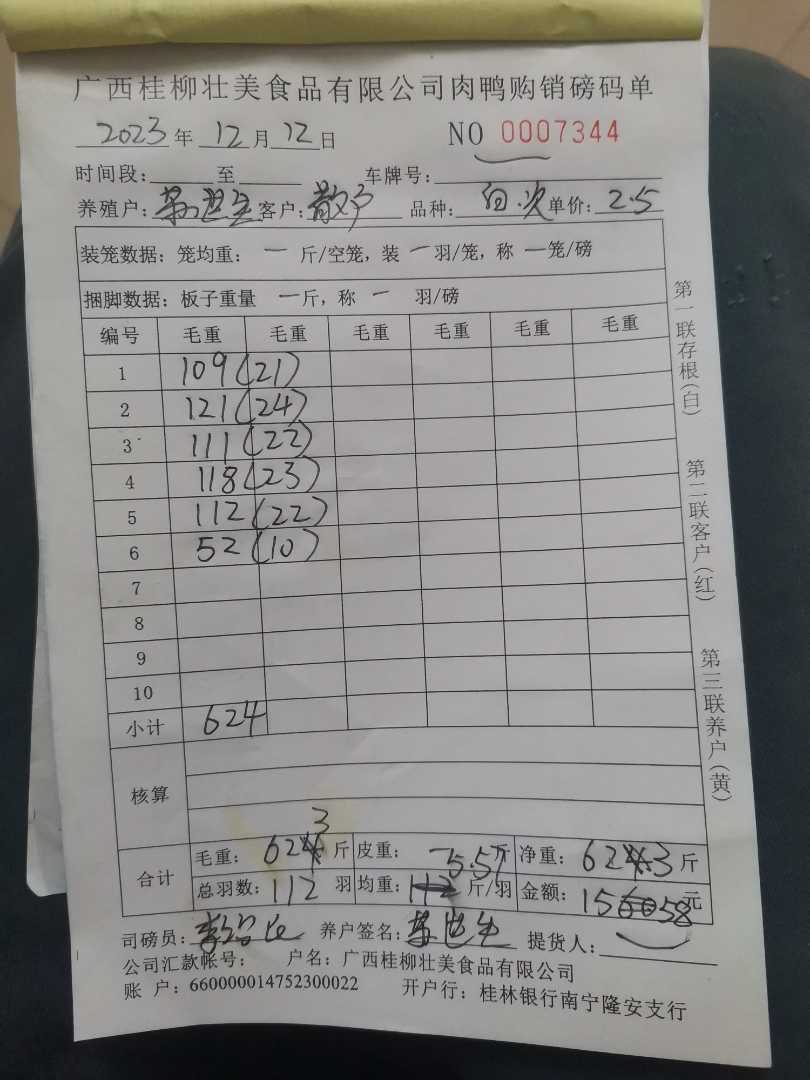 广西桂柳壮美食品有限公司肉鸭购销磅码单
2023年12月12日 NO 0007344
时间段:______至______ 车牌号:
养殖户: 客户:散户 品种:白.次 单价:2.5
装笼数据:笼均重:一斤/空笼,装一羽/笼,称一笼/磅
捆脚数据:板子重量 一斤,称一 羽/磅
编号 毛重 毛重 毛重 毛重 毛重 毛重
1 109(21)
2 121(24)
3 111(22)
4 118(23)
5 112(22)
6 52(10)
7
8
9
10
小计 624
核算
合计 毛重:623斤 皮重: 斤 净重:623斤
总羽数:112羽 均重:5.57斤/羽 金额:1558元
司磅员: 养户签名: 提货人:
公司汇款帐号: 户名:广西桂柳壮美食品有限公司
账 户:660000014752300022 开户行:桂林银行南宁隆安支行
第一联存根(白) 第二联客户(红) 第三联养户(黄)